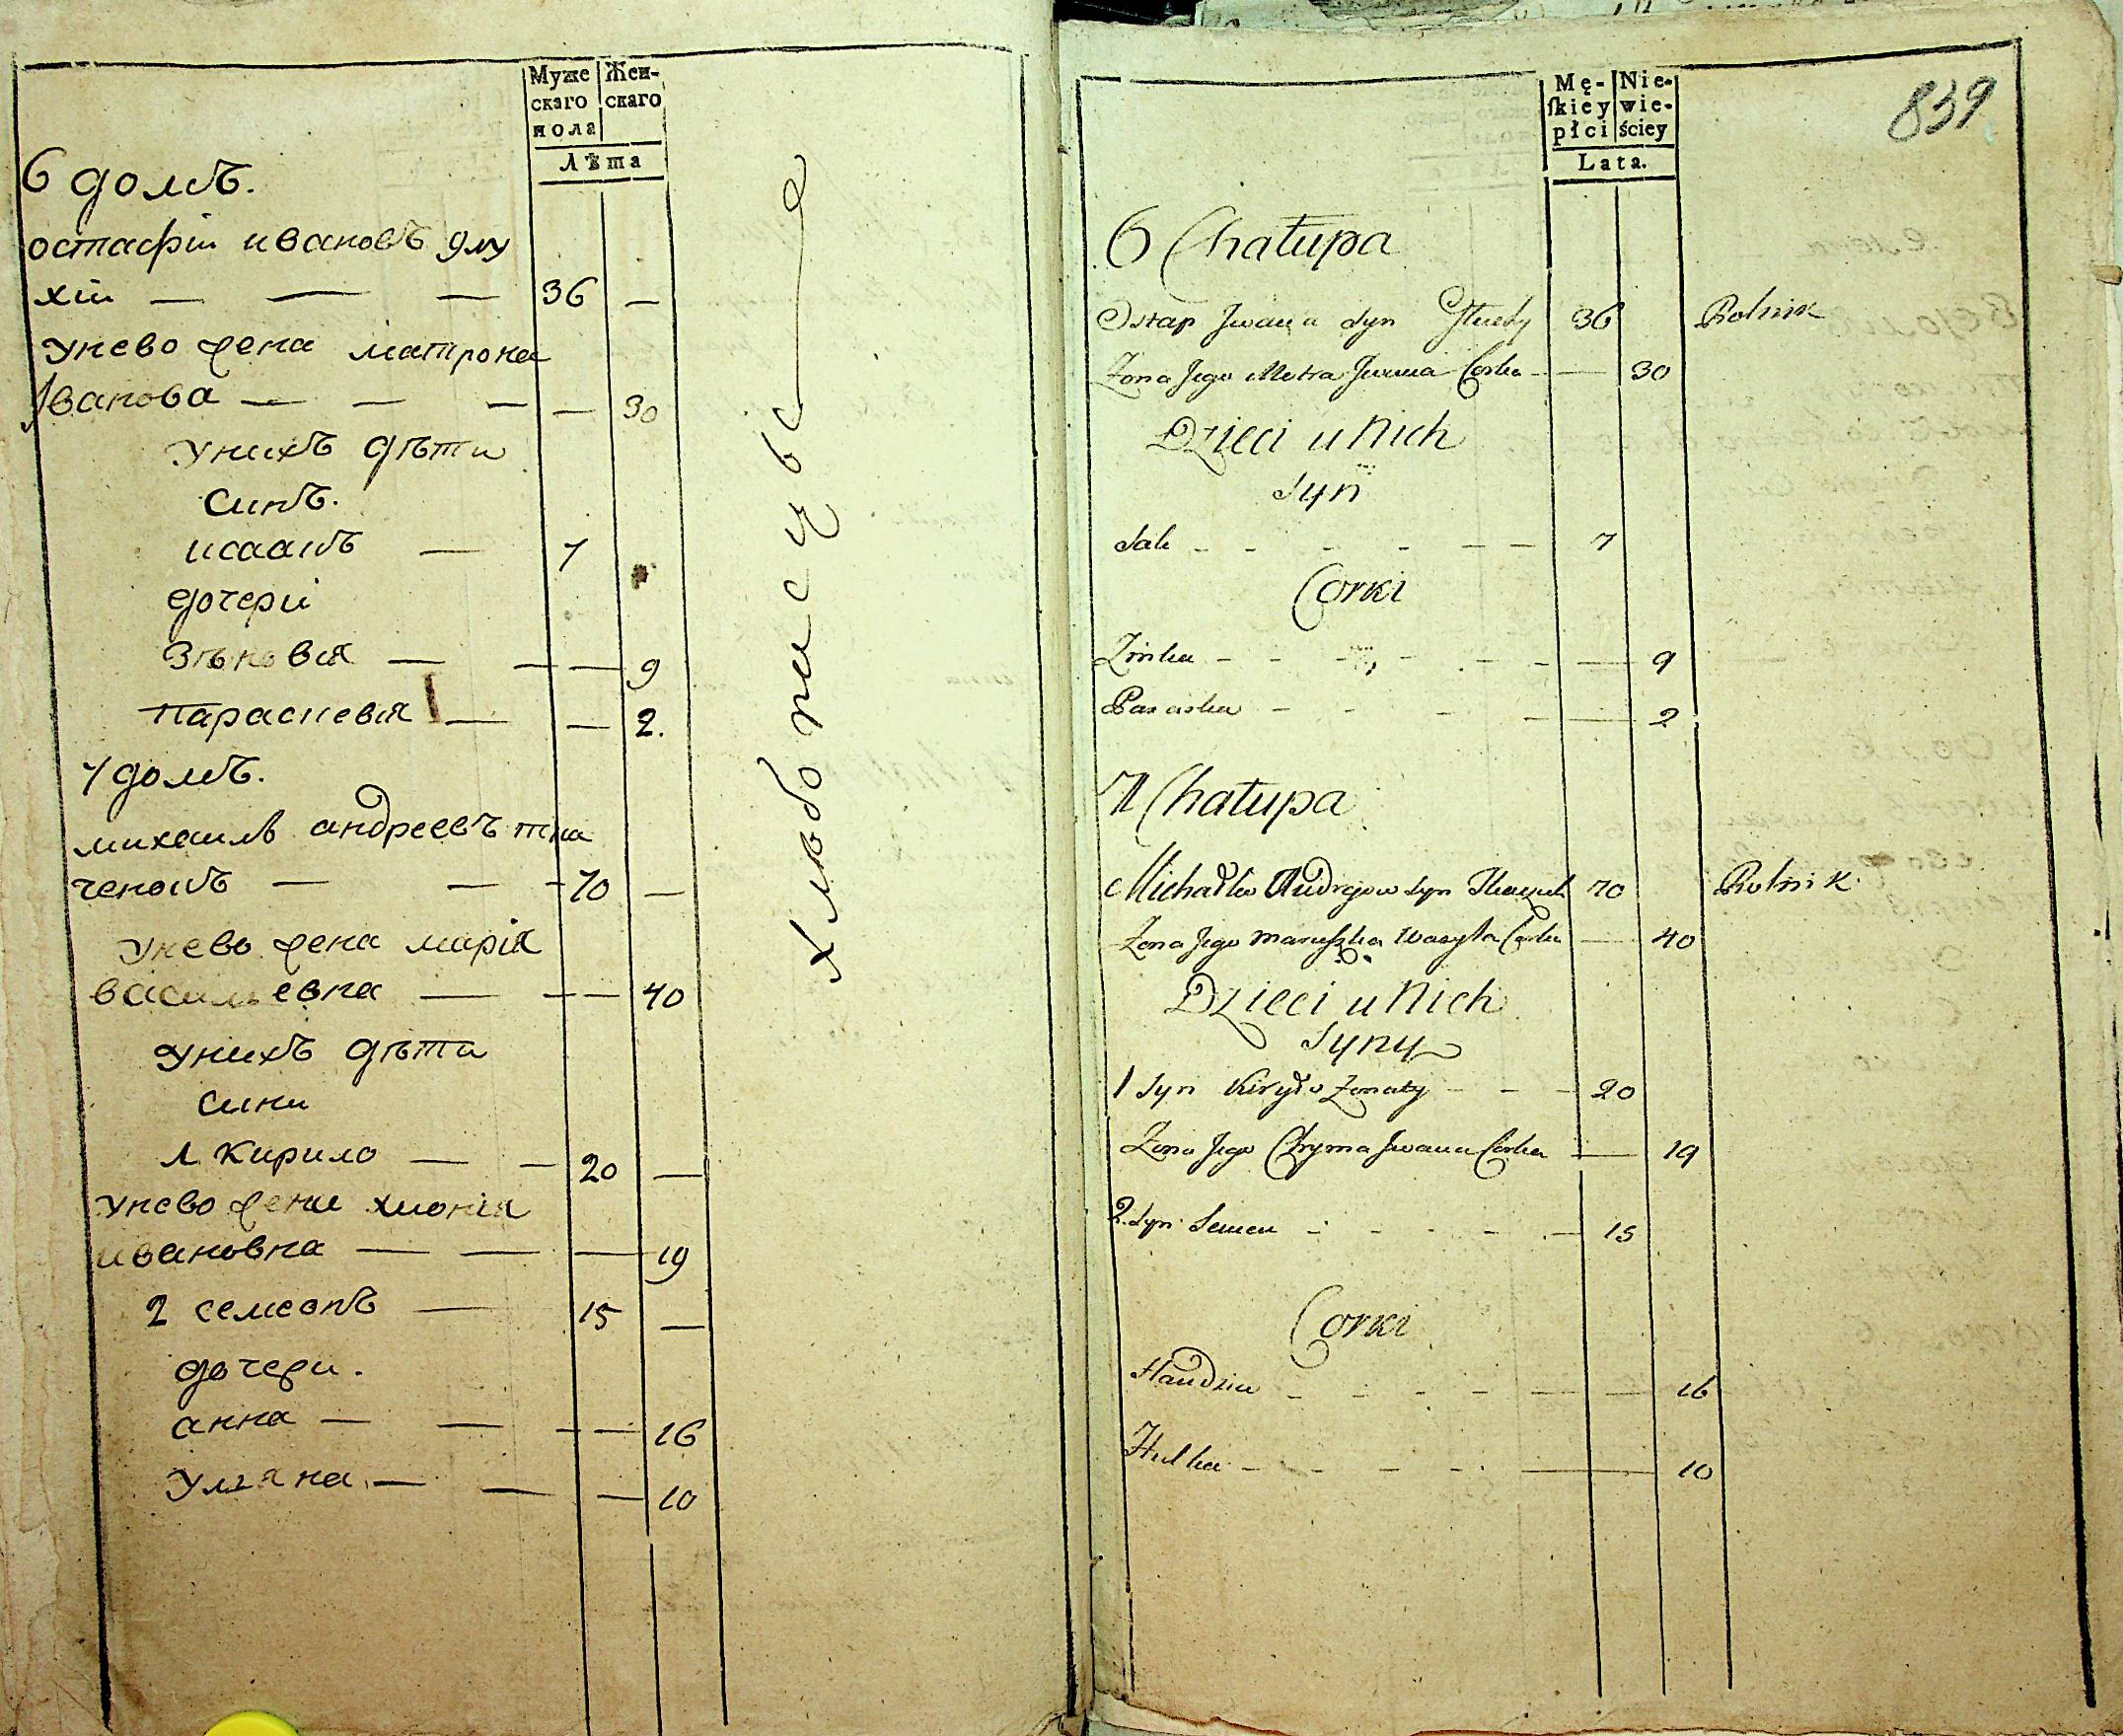 Муже
скаго
пола
Жен-
скаго
Лѣта
6 домъ.
остафіи ивановъ глу
хіи — — — 36 —
унево жена матрона
Іванова — — — — 30
унихъ дѣти
синъ.
исаакъ — 7
дочери
Зѣновія — — — 9
Парасковія — — 2.
7 домъ.
михаилъ андреевъ тка
ченокъ — — - 70 —
унево жена марія
васильевна — — — 40
унихъ дѣти
сини
1 Кирило — — 20 —
унево жена хионія
ивановна — — — 19
2 семеонъ — 15 —
дочери.
анна — — — — 16
Уляна — — — 10
Хлѣбописцы
839
Mę-
skiey
płci
Nie-
wie-
ściey
Lata.
6 Chałupa
Ostap Jwana Syn Głuchy 36 Rolnik
Żona Jego Motra Jwana Corka — 30
Dzieci u Nich
Syn
Sak - - - - - - 7
Corki
Zinka - - - - - - — 9
Paraska - - - - — 2
7 Chałupa
Michałko Andrejow Syn 70 Rolnik.
Żona Jego Maruszka Wasyla Corka — 40
Dzieci u Nich
Syny
1 Syn Kiryło Żonaty - - - 20
Żona Jego Chryma Jwana Corka — 19
2. Syn Semen - - - - - 15
Corki
Handzia - - - - - — 16
Hulka - - - - - — 10